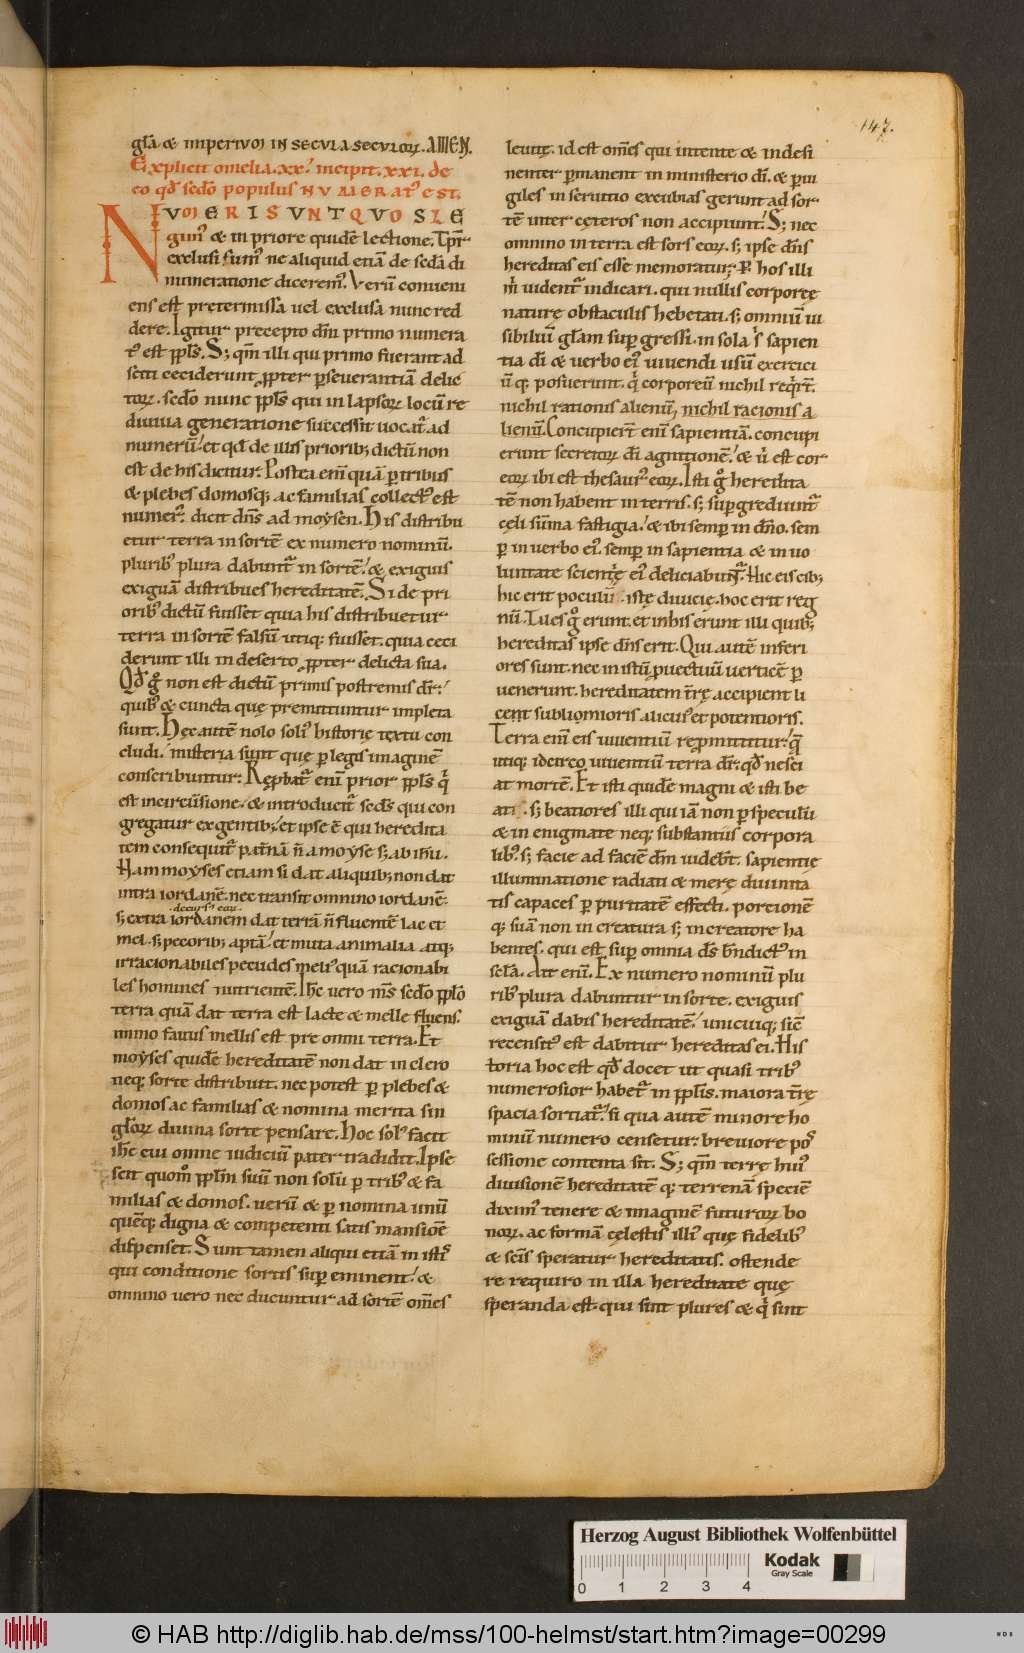 147.
głā & imperium in secula seculoꝝ. AMEN.
Explicit omelia .xx.' incipit .xxi. de
eo qđ sedo populus NVMERAT' EST.
NVMERIS VNT QVOS LE
gim' & in priore quidē lectione. Tpr̄
exclusi sum' ne aliquid etiā de sedā di
numeratione dicerem'. Verū conueni
ens est pretermissa uel exclusa nunc red
dere. Igitur precepto dn̄i primo numera
t' est ppl̄s. S; qm̄ illi qui primo fuerant ad
sciti ceciderunt ꝓpter ꝑseuerantiā delic
toꝝ. sedo nunc ppl̄s qui in lapsoꝝ locū re
diuiua generatione successit uocat' ad
numerū.' et qđ de illis priorib; dictū non
est de his dicitur. Postea enī quā ꝑ tribus
& plebes domosq; ac familias collect' est
numer'. dicit dn̄s ad moysen. His distribu
etur terra in sortē ex numero nominū.
plurib' plura dabunt' in sortē.' & exiguis
exiguā distribues hereditatē. Si de pri
orib' dictū fuisset quia his distribuetur
terra in sortē falsū utiq; fuisset. quia ceci
derunt illi in deserto ꝓpter delicta sua.
Qđ g° non est dictū primis postremis dr̄.'
quib' & cuncta quę premittuntur impleta
sunt. Hęc autē nolo solū historię textu con
cludi. misteria sunt quę ꝑ legis imaginē
conscribuntur. Reꝓbat' enī prior ppl̄s q'
est in circūsione. & introducit' sed's qui con
gregatur ex gentib;.' et ipse ē qui heredita
tem consequit' pat'nā n̄ a moyse s; ab ihū.
Nam moyses etiam si dat aliquib; non dat
intra iordanē. nec transit omnino iordanē.
decursū eaꝝ
s; extra iordanem dat terrā n̄ fluentē lac et
mel. s; pecorib; aptā.' et muta animalia atq;
irracionabiles pecudes meli' quā racionabi
les homines nutrientē. Ih̄c uero m̄s sedo pplo
terra quā dat terra est lacte & melle fluens.
immo fauus mellis est pre omni terra. Et
moyses quidē hereditatē non dat in clero
neq; sorte distribuit. nec potest ꝑ plebes &
domos ac familias & nomina merita sin
gl̄oꝝ diuina sorte pensare. Hoc sol' facit
ih̄c cui omne iudiciū pater tradidit. Ipse
scit quom° ppl̄m suū non solū ꝑ trib' & fa
milias & domos. uerū & ꝑ nomina unū
quēq; digna & competenti satis mansiōe
dispenset. Sunt tamen aliqui etiā in istis
qui conditione sortis suꝑ eminent.' &
omnino uero nec ducuntur ad sortē om̄es
leuitę. id est om̄es qui intente & indesi
nenter ꝑmanent in ministerio dī. & ꝑui
giles in seruitio excubias gerunt ad sor
tē inter cęteros non accipiunt.' S; nec
omnino in terra est sors eoꝝ. s; ipse dn̄s
hereditas eis esse memoratur. P hos illi
m' uident' indicari. qui nullis corporeę
naturę obstaculis hebetati. s; omniū ui
sibiliū gl̄am suꝑ gressi. in sola s' sapien
tia dī & uerbo ei' uiuendi usū exercici
ū q; posuerunt. q' corporeū nichil req'rt.
nichil rationis alienū, nichil racionis a
lienū. Concupier̄t enī sapientiā. concupi
erunt secretoꝝ dī agnitionē.' & u' est cor
eoꝝ ibi est thesaur' eoꝝ. Isti g° heredita
tē non habent in terris. s; suꝑ grediunt'
cęli sūma fastigia.' & ibi semꝑ in dn̄o. sem
ꝑ in uerbo ei'. semꝑ in sapientia & in uo
luntate scientię ei' deliciabunt'. Hic eis cib;
hic erit poculū. istę diuicię. hoc erit reg
nū. Tales g° erunt. et in his erunt illi quib;
hereditas ipse dn̄s erit. Qui autē inferi
ores sunt. nec in istū ꝓuectuū uerticē ꝑ
uenerunt. hereditatem t'rę accipient li
cent sublimioris alicui' et potentioris.
Terra enī eis uiuentiū reꝓmittitur.' q̨
utiq; idcirco uiuentiū terra dr̄. qđ nesci
at mortē. Et isti quidē magni & isti be
ati. s; beatiores illi qui iā non ꝑ speculū
& in enigmate neq; substantiis corpora
lib'. s; facie ad faciē dm̄ uideb̄t. sapientię
illuminatione radiati & merę diuinita
tis capaces ꝑ puritatē effecti. porcionē
q; suā non in creatura s; in creatore ha
bentes. qui est suꝑ omnia d̄s bn̄dict' in
scl̄a. Ait enī. Ex numero nominū plu
rib' plura dabuntur in sorte. exiguis
exiguā dabis hereditatē.' unicuiq; sicē
recensit' est dabitur hereditas ei. His
toria hoc est qđ docet ut quasi trib'
numerosior habet' in ppl̄is. maiora t'rę
spacia sortiat'.' si qua autē minore ho
minū numero censetur. breuiore pos
sessione contenta sit. S; qm̄ terrę hui'
diuisionē hereditatē q; terrenā speciē
dixim' tenere & imaginē futuroꝝ bo
noꝝ. ac formā cęlestis illi' quę fidelib'
& scīs speratur hereditatis. ostende
re requiro in illa hereditate quę
speranda est. qui sint plures & q' sint
Herzog August Bibliothek Wolfenbüttel
0 1 2 3 4
Kodak
Gray Scale
© HAB http://diglib.hab.de/mss/100-helmst/start.htm?image=00299